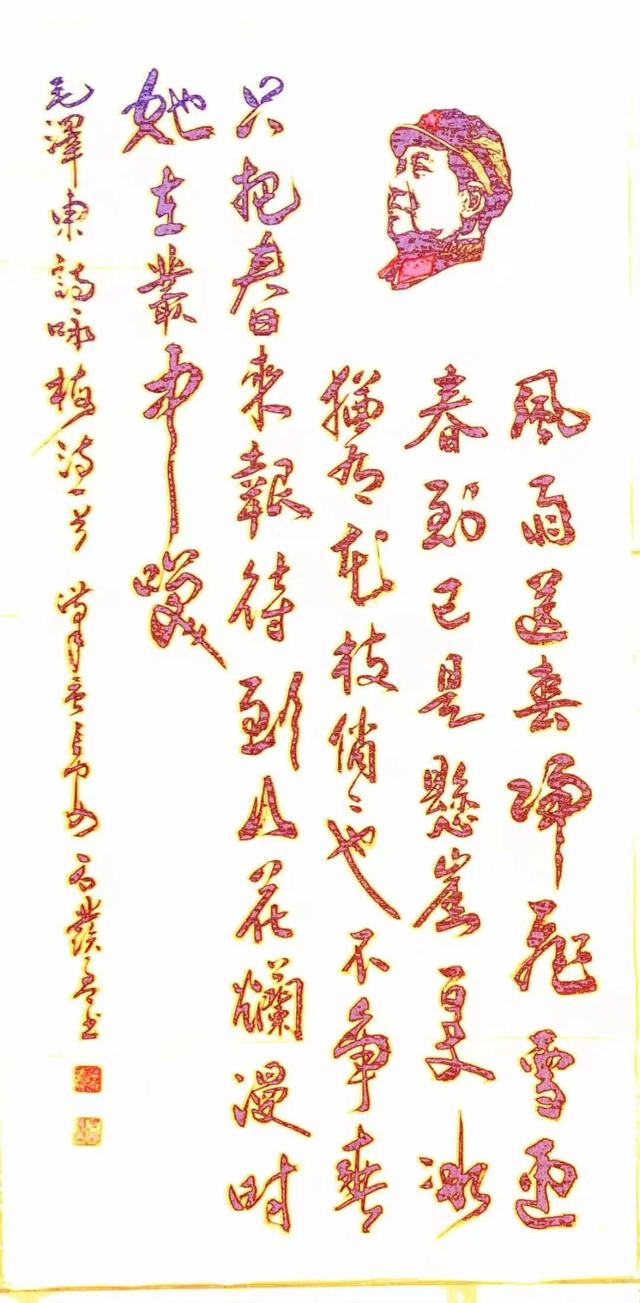 風雨送春歸飛雪迎
春到已是懸崖百丈冰
猶有花枝俏〻也不争春
只把春来報待到山花爛漫时
她在叢中笑
毛澤東詩咏梅诗一首